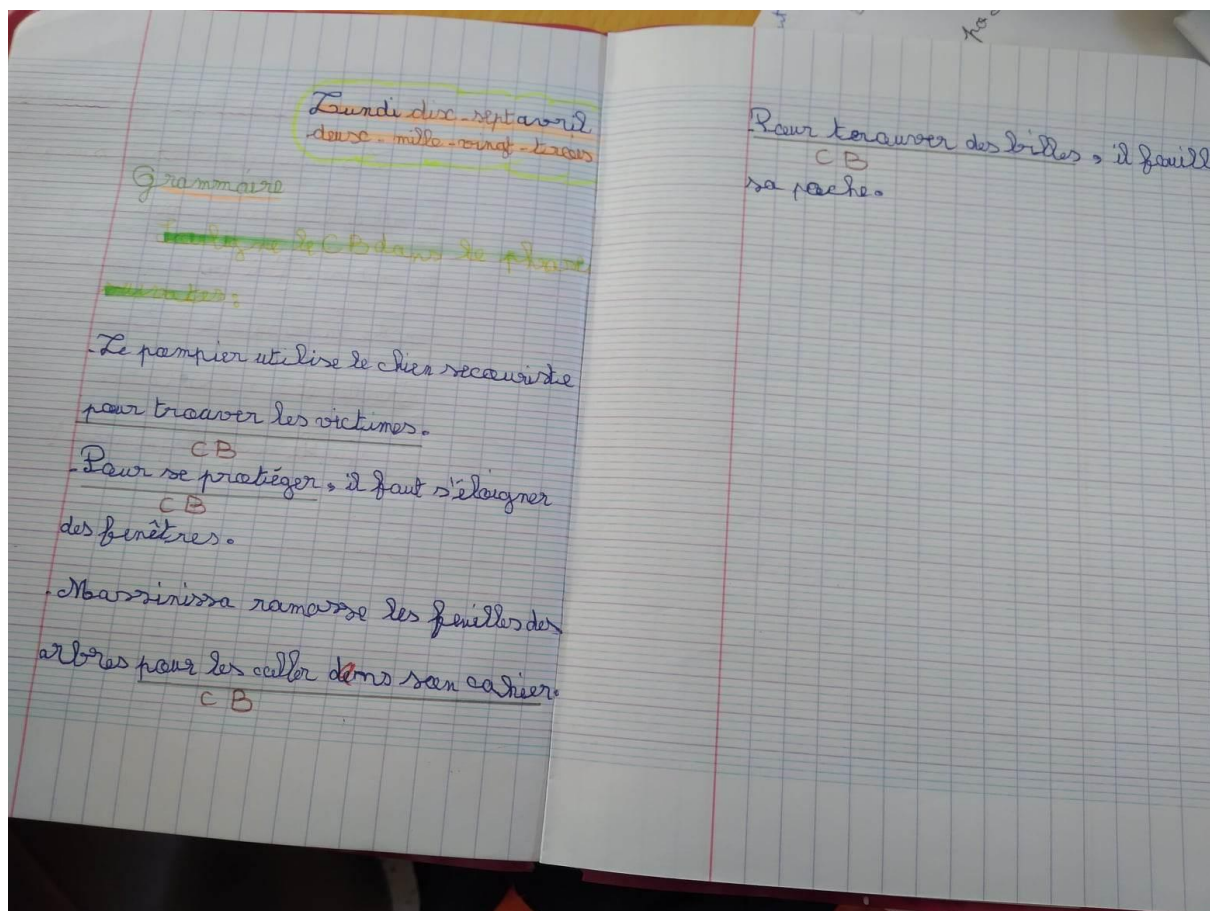 Lundi dix-sept avril
deux-mille-vingt-trois
Grammaire
le CB dans le phrase
Le pompier utilise le chien secouriste
pour trouver les victimes.
CB
Pour se protiéger, il faut s'éloigner
CB
des fenêtres.
Massinissa ramasse les feuilles des
arbres pour les coller dans son cahier.
CB
Pour terouver des billes, il fouill
CB
sa poche.